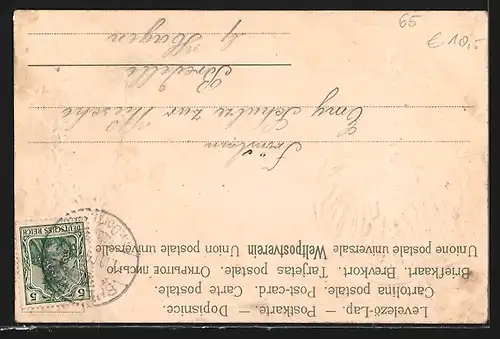 Levelező-Lap. — Postkarte. — Dopisnice.
Cartolina postale. Post-card. Carte postale.
Briefkaart. Brevkort. Tarjetas postale. Открытое письмо
Unione postale universale Weltpostverein Union postale universelle
DEUTSCHES REICH
5 5
Fräulein
Emy Schulze zur
b/ Hagen
65
€ 10,-